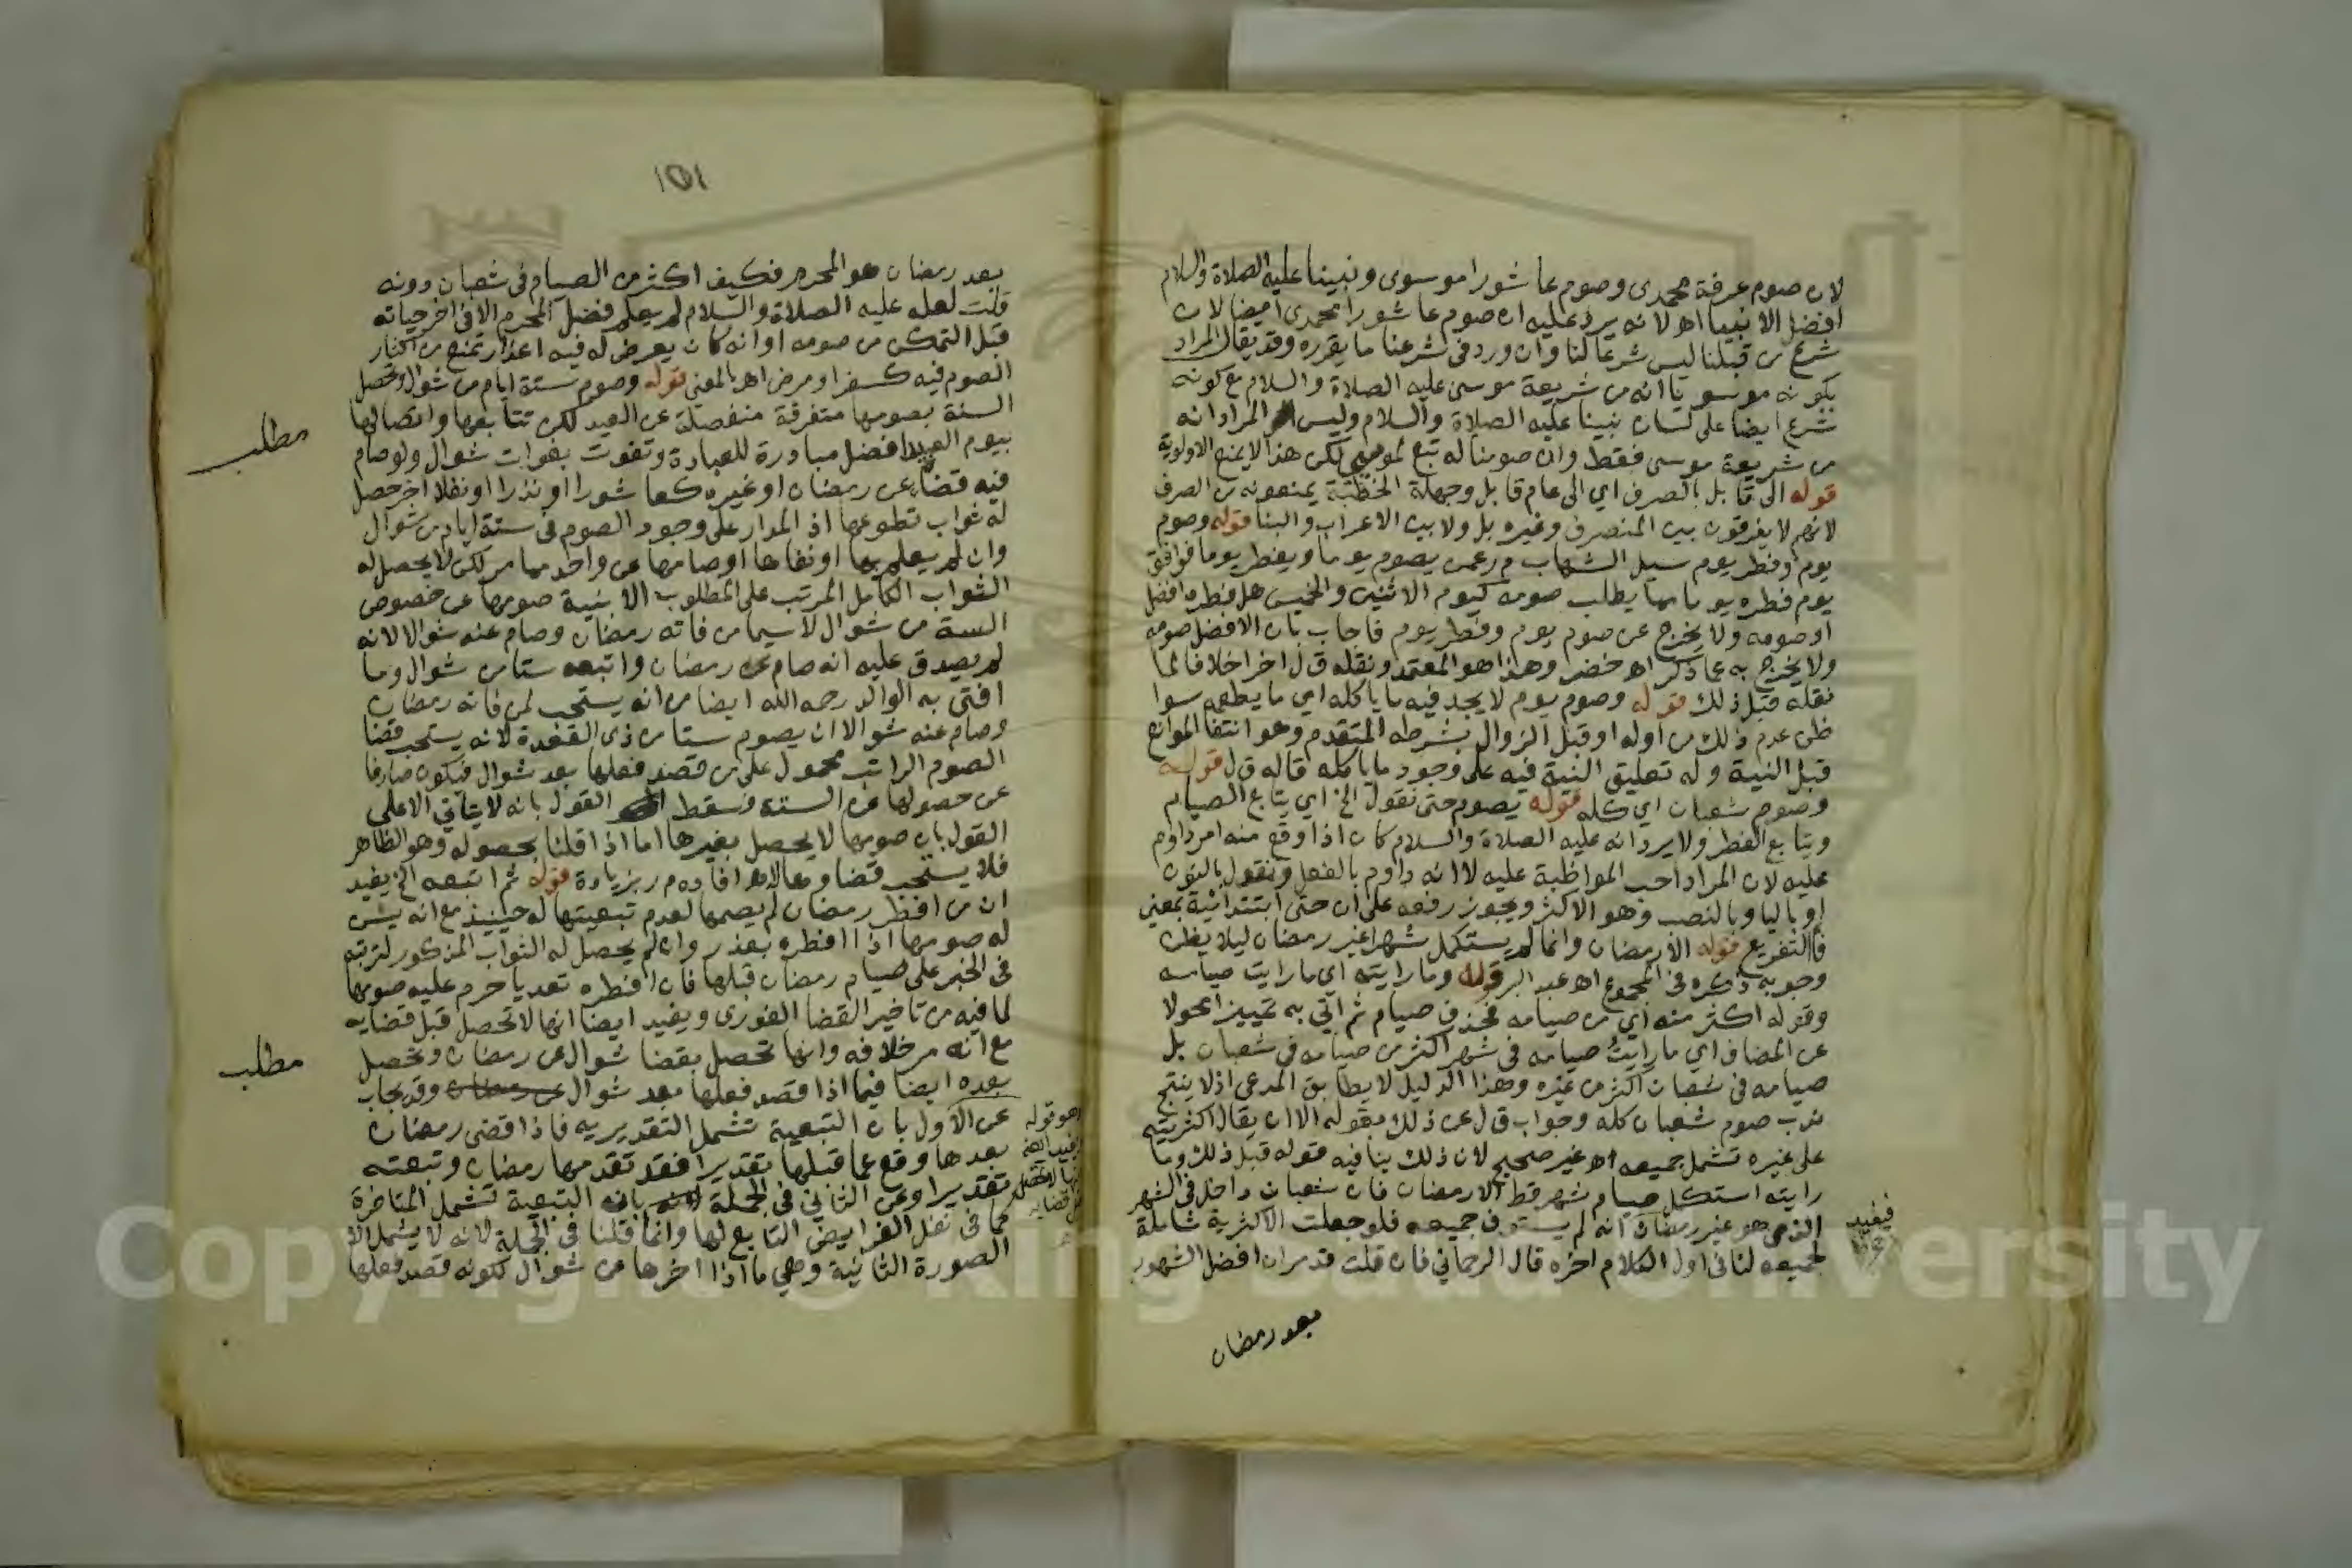 لان صوم عرفة محمدى وصوم عاشورا موسوى ونبينا عليه الصلاة والسلام
افضل الانبيا اه لانه يرد عليه ان صوم عاشورا محمدى ايضا لان
شرع من قبلنا ليس شرعا لنا وان ورد فى شرعنا ما يقرره وقد يقال المراد
بكونه موسويا انه من شريعة موسى عليه الصلاة والسلام مع كونه
شرع ايضا على لسان نبينا عليه الصلاة والسلام وليس المراد انه
من شريعة موسى فقط وان صومنا له تبع لموسى لكن هذا لا يمنع الاولوية
قوله الى قابل بالصرف اي الى عام قابل وجهلة الخطبة يمنعونه من الصرف
لانهم لا يفرقون بين المنصرف وغيره بل ولا بين الاعراب والبنا قوله وصوم
يوم وفطر يوم سيل الشهاب م ر عمن يصوم يوما ويفطر يوما فوافق
يوم فطره يوما مما يطلب صومه كيوم الاثنين والخميس هل فطره افضل
او صومه ولا يخرج عن صوم يوم وفطر يوم فاجاب بان الافضل صومه
ولا يخرج به عما ذكر اه خضر وهذا هو المعتمد ونقله ق ل اخرا خلافا لما
نقله قبل ذلك قوله وصوم يوم لا يجد فيه ما ياكله اي ما يطعمه سوا
ظن عدم ذلك من اوله او قبل الزوال بشرطه المتقدم وهو انتفا الموانع
قبل النية وله تعليق النية فيه على وجود ما ياكله قاله ق ل قوله
وصوم شعبان اي كله قوله يصوم حتى نقول الخ اي يتابع الصيام
ويتابع الفطر ولا يرد انه عليه الصلاة والسلام كان اذا وقع منه امر داوم
عليه لان المراد احب المواظبة عليه لا انه داوم بالفعل ونقول بالنون
او باليا وبالنصب وهو الاكثر ويجوز رفعه على ان حتى ابتدائية بمعنى
فا التفريع قوله الا رمضان وانما لم يستكمل شهرا غير رمضان ليلا يظن
وجوبه ذكره فى المجموع اه عبد البر قوله وما رايته اي ما رايت صيامه
وقوله اكثر منه اي من صيامه فحذف صيام ثم اتى به تمييزا محولا
عن المضاف اي ما رايت صيامه فى شهر اكثر من صيامه فى شعبان بل
صيامه فى شعبان اكثر من غيره وهذا الدليل لا يطابق المدعى اذ لا ينتج
ندب صوم شعبان كله وجواب ق ل عن ذلك بقوله الا ان يقال اكثريته
على غيره تشمل جميعه اه غير صحيح لان ذلك ينافيه قوله قبل ذلك وما
رايته استكمل صيام شهر قط الا رمضان فان شعبان داخل فى الشهر
الذى هو غير رمضان انه لم يستوف جميعه فلو جعلت الاكثرية شاملة
لجميعه لنافى اول الكلام اخره قال الرحمانى فان قلت قد مر ان افضل الشهور
فيفيد
بعد رمضان
١٥١
بعد رمضان هو المحرم فكيف اكثر من الصيام فى شعبان دونه
قلت لعله عليه الصلاة والسلام لم يعلم فضل المحرم الا فى اخر حياته
قبل التمكن من صومه او انه كان يعرض له فيه اعذار تمنع من اكثار
الصوم فيه كسفر او مرض اه بالمعنى قوله وصوم ستة ايام من شوال وتحصل
السنة بصومها متفرقة منفصلة عن العيد لكن تتابعها واتصالها
بيوم العيد افضل مبادرة للعبادة وتفوت بفوات شوال ولو صام
فيه قضا عن رمضان او غيره كعاشورا او نذرا او نفلا اخر حصل
له ثواب تطوعها اذ المدار على وجود الصوم فى ستة ايام من شوال
وان لم يعلم بها او نفاها او صامها عن واحد مما مر لكن لا يحصل له
الثواب الكامل المرتب على المطلوب الا بنية صومها عن خصوص
الستة من شوال لا سيما من فاته رمضان وصام عنه شوالا لانه
لم يصدق عليه انه صام عن رمضان واتبعه ستا من شوال وما
افتى به الوالد رحمه الله ايضا من انه يستحب لمن فاته رمضان
وصام عنه شوالا ان يصوم ستا من ذى القعدة لانه يستحب قضا
الصوم الراتب محمول على من قصد فعلها بعد شوال فيكون صارفا
عن حصولها عن الستة فسقط القول بانه لا يتاتى الا على
القول بان صومها لا يحصل بغيرها اما اذا قلنا بحصوله وهو الظاهر
فلا يستحب قضاوها الا اه افاده م ر بزيادة قوله ثم اتبعه الخ يفيد
ان من افطر رمضان لم يصمها لعدم تبعيتها له حينيذ مع انه يسن
له صومها اذا افطره بعذر وان لم يحصل له الثواب المذكور لترتبه
فى الخبر على صيام رمضان قبلها فان افطره تعديا حرم عليه صومها
لما فيه من تاخير القضا الفورى ويفيد ايضا انها لا تحصل قبل قضايه
مع انه مر خلافه وانها تحصل بقضا شوال عن رمضان وتحصل
بعده ايضا فيما اذا قصد فعلها بعد شوال عن رمضان وقد يجاب
عن الاول بان التبعية تشمل التقديرية فاذا قضى رمضان
بعدها وقع عما قبلها تقديرا فقد تقدمها رمضان وتبعته
تقديرا وعن الثانى فى الجملة بانه التبعية تشمل المتاخرة
كما فى نفل الفرايض التابع لها وانما قلنا فى الجملة لانه لا يشمل الا
الصورة الثانية وهي ما اذا اخرها من شوال لكونه قصد فعلها
مطلب
مطلب
هو قوله
Copyright © King Saud University